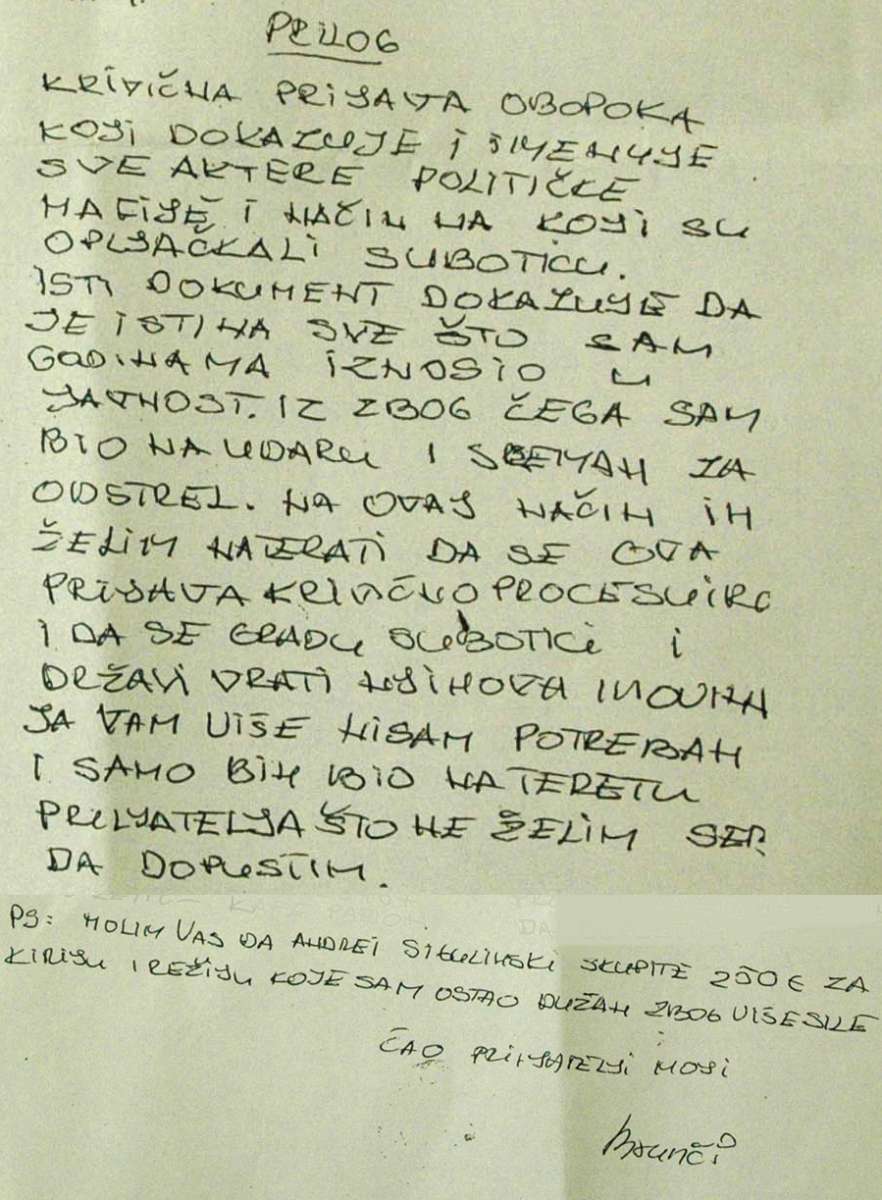 PRILOG
KRIVIČNA PRIJAVA OBOPOKA
KOJI DOKAZUJE I IMENUJE
SVE AKTERE POLITIČKE
MAFIJE I NAČIN NA KOJI SU
OPLJAČKALI SUBOTICU.
ISTI DOKUMENT DOKAZUJE DA
JE ISTINA SVE ŠTO SAM
GODINAMA IZNOSIO U
JAVNOST. IZ ZBOG ČEGA SAM
BIO NA UDARU I ZA
ODSTREL. NA OVAJ NAČIN IH
ŽELIM NATERATI DA SE OVA
PRIJAVA KRIVIČNO PROCESUIRA
I DA SE GRADU SUBOTICI I
DRŽAVI VRATI NJIHOVA IMOVINA
JA VAM VIŠE NISAM POTREBAN
I SAMO BIH BIO NA TERETU
PRIJATELJA ŠTO NE ŽELIM SEBI
DA DOPUSTIM.
PS: MOLIM VAS DA ANDREI SKUPITE 250 € ZA
KIRIJU I REŽIJU KOJE SAM OSTAO DUŽAN ZBOG VIŠE SILE
ČAO PRIJATELJI MOJI